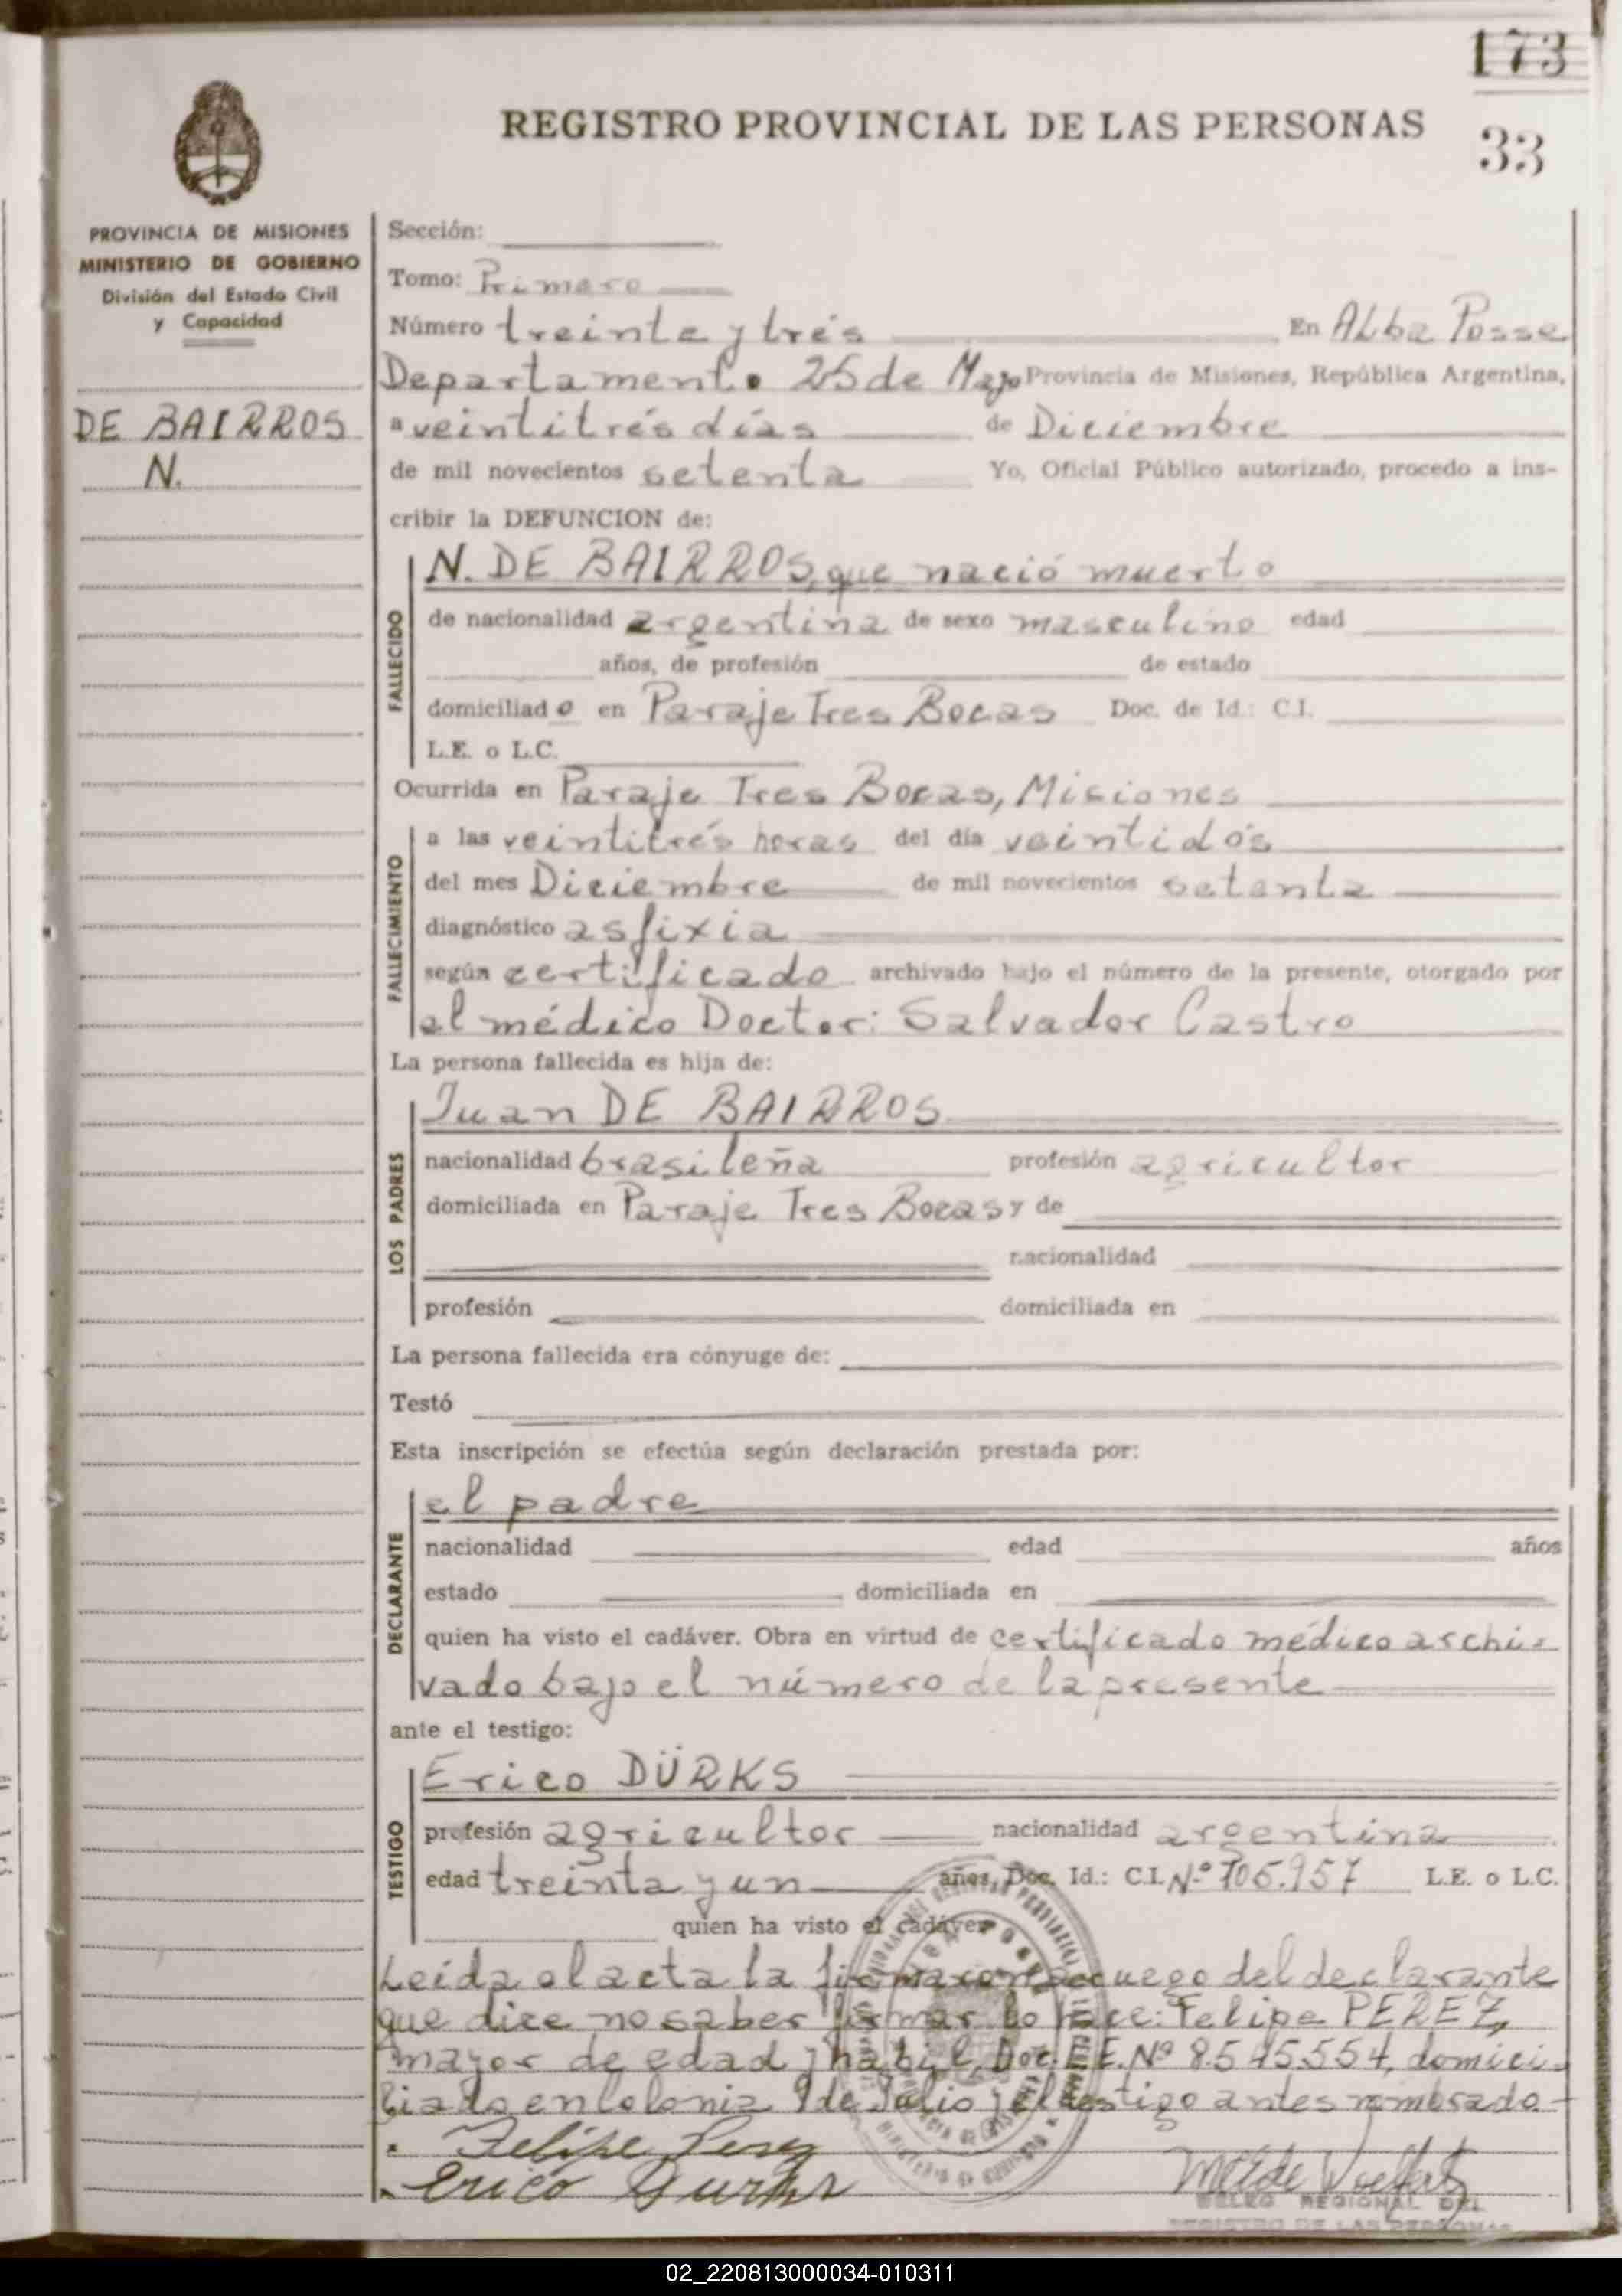 173
REGISTRO PROVINCIAL DE LAS PERSONAS
33
PROVINCIA DE MISIONES
MINISTERIO DE GOBIERNO
División del Estado Civil
y Capacidad
DE BAIRROS
N.
Sección:
Tomo: Primero
Número treinta y trés En ALba Posse
Departamento 25 de Mayo Provincia de Misiones, República Argentina,
a veintitrés días de Diciembre
de mil novecientos setenta Yo, Oficial Público autorizado, procedo a ins-
cribir la DEFUNCION de:
FALLECIDO
N. DE BAIRROS, que nació muerto
de nacionalidad argentina de sexo masculino edad
años, de profesión de estado
domiciliado en Paraje Tres Bocas Doc. de Id.: C.I.
L.E. o L.C.
Ocurrida en Paraje Tres Bocas, Misiones
FALLECIMIENTO
a las veintitrés horas del día veintidós
del mes Diciembre de mil novecientos setenta
diagnóstico asfixia
según certificado archivado bajo el número de la presente, otorgado por
el médico Doctor: Salvador Castro
La persona fallecida es hija de:
LOS PADRES
Juan DE BAIRROS
nacionalidad brasileña profesión agricultor
domiciliada en Paraje Tres Bocas y de
nacionalidad
profesión domiciliada en
La persona fallecida era cónyuge de:
Testó
Esta inscripción se efectúa según declaración prestada por:
DECLARANTE
el padre
nacionalidad edad años
estado domiciliada en
quien ha visto el cadáver. Obra en virtud de certificado médico archi-
vado bajo el número de la presente
ante el testigo:
TESTIGO
Erico DÜRKS
profesión agricultor nacionalidad argentina
edad treinta y un años, Doc. Id.: C.I. Nº 105.957 L.E. o L.C.
quien ha visto el cadáver
Leída el acta la firmaron a ruego del declarante
que dice no saber firmar lo hace: Felipe PEREZ,
mayor de edad y habil, Doc. L.E. Nº 8.545.554, domici-
liado en Colonia 9 de Julio y el testigo antes nombrado.-
Felipe Perez
Erico Durks
REGIONAL DEL
REGISTRO DE LAS PERSONAS
02_220813000034-010311